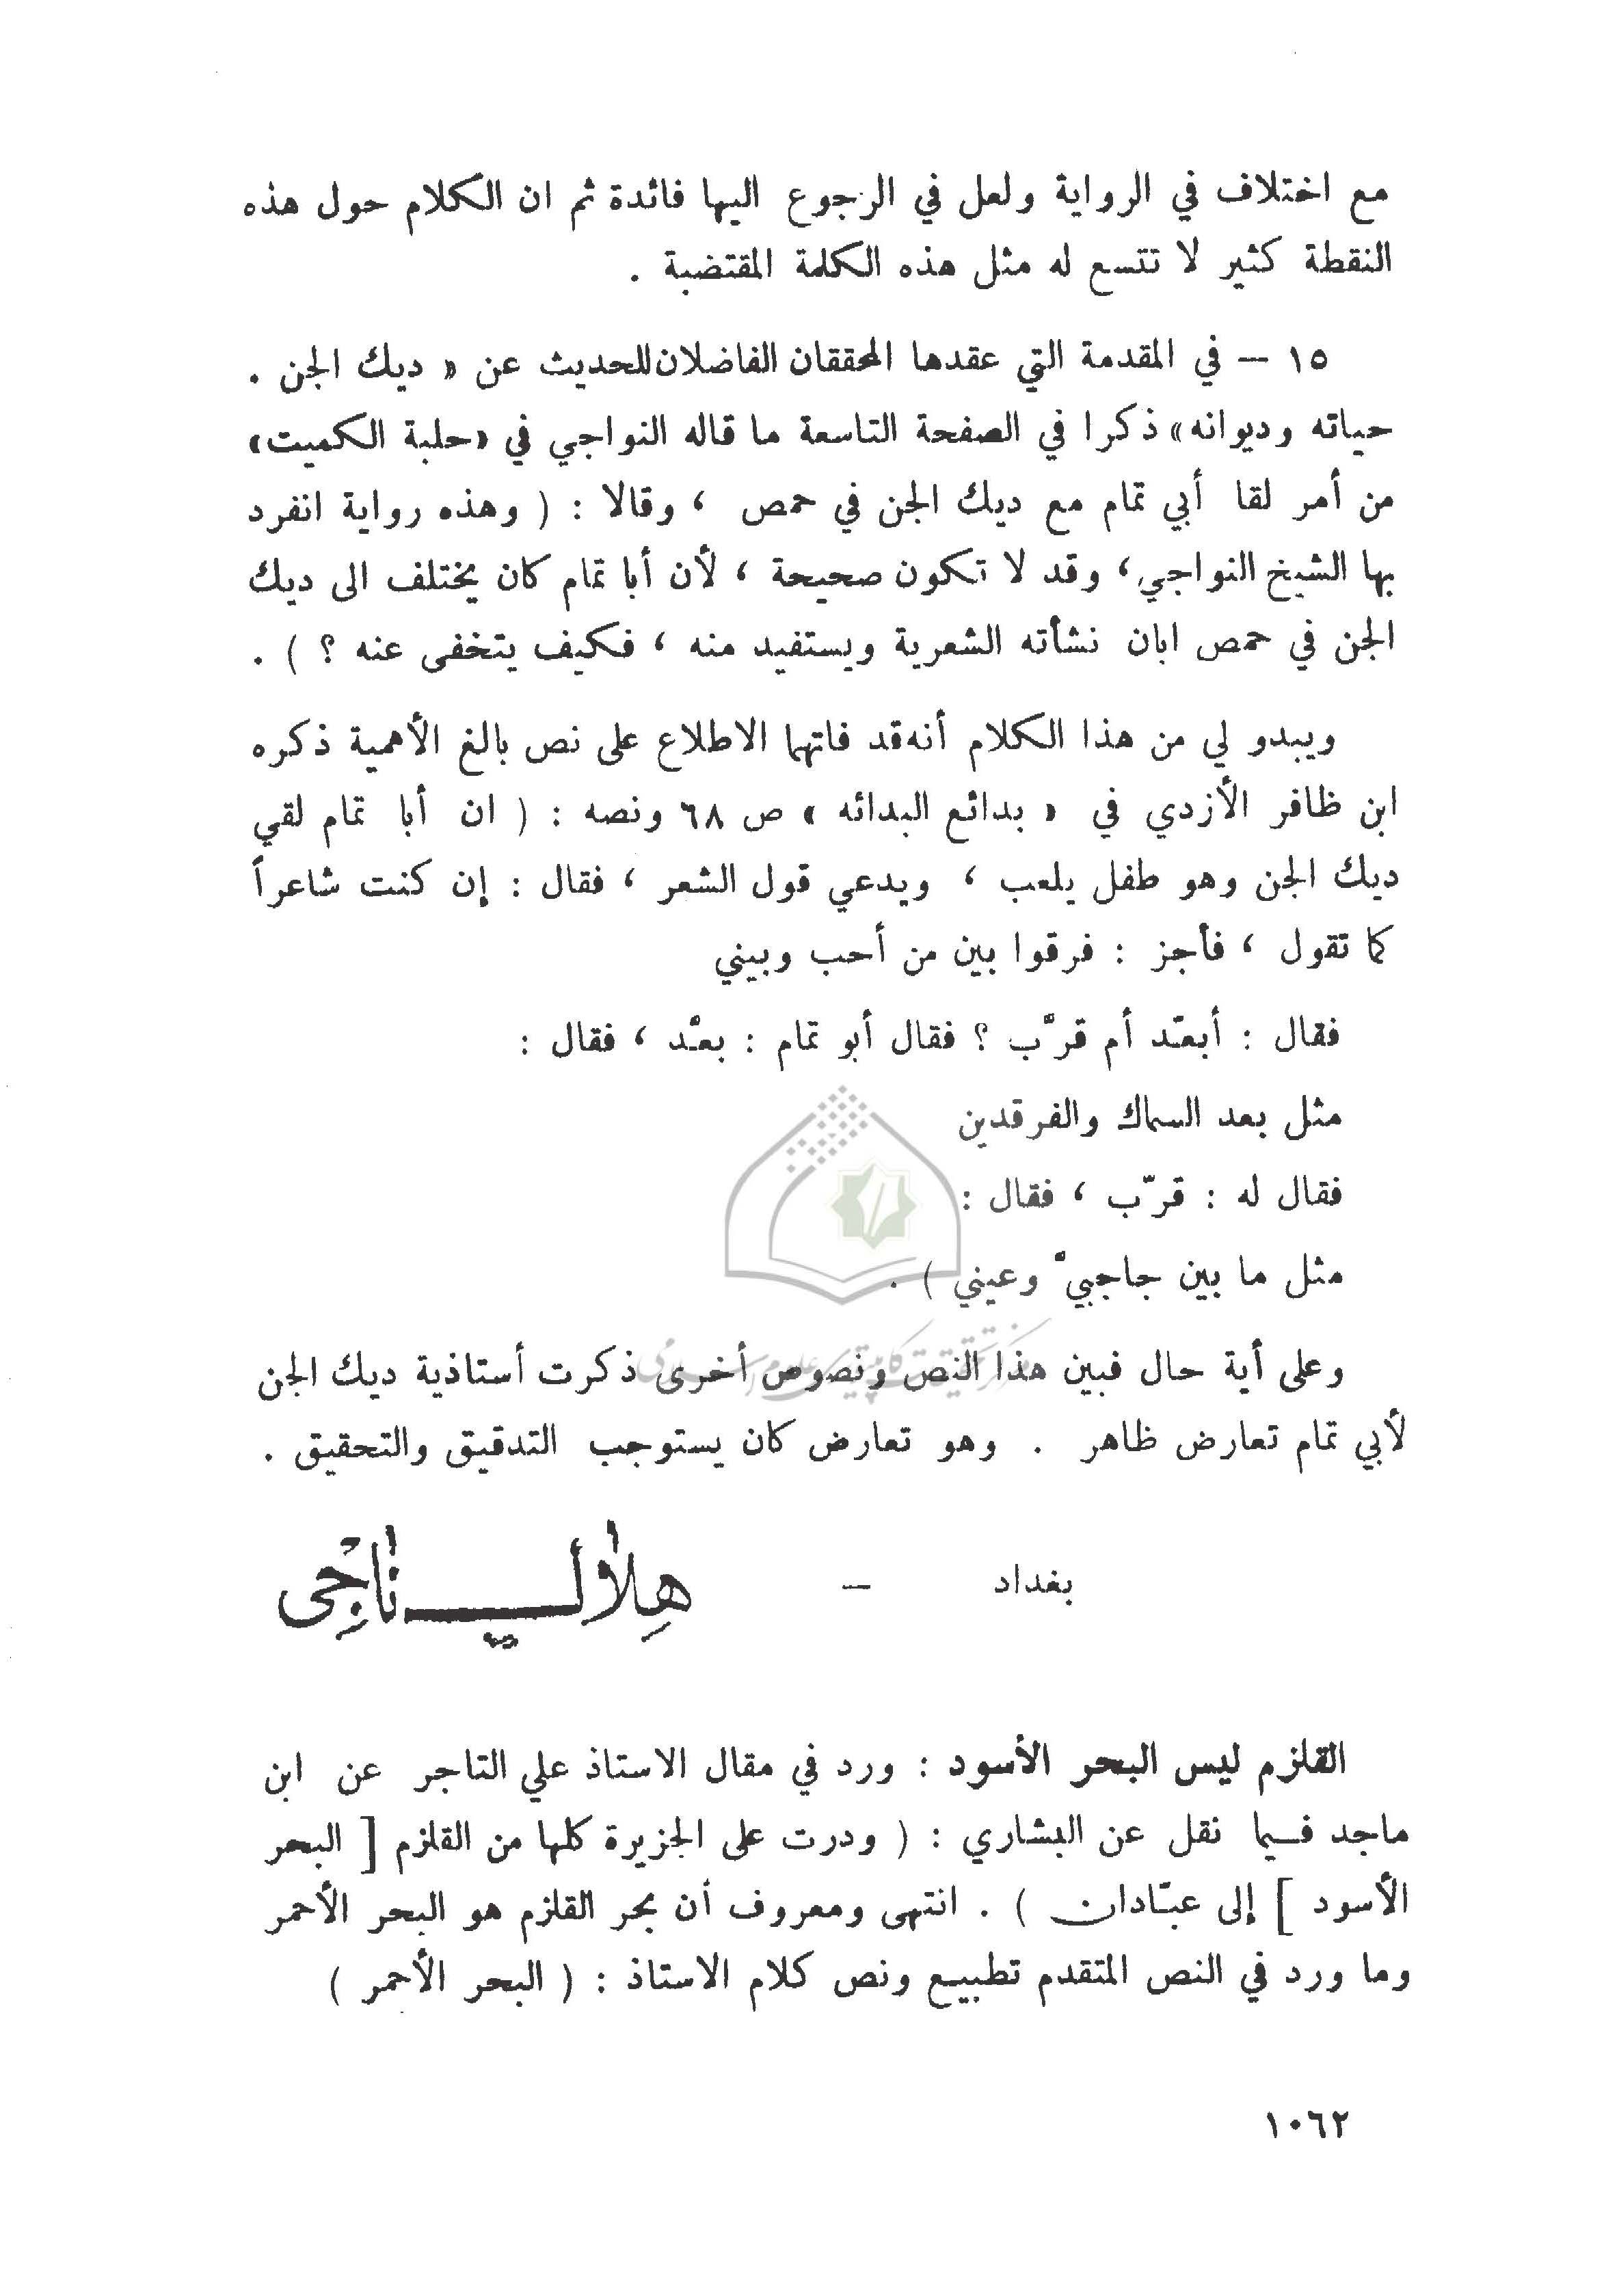 مع اختلاف في الرواية ولعل في الرجوع اليها فائدة ثم ان الكلام حول هذه
النقطة كثير لا تتسع له مثل هذه الكلمة المقتضبة .
١٥ — في المقدمة التي عقدها المحققان الفاضلان للحديث عن « ديك الجن .
حياته وديوانه» ذكرا في الصفحة التاسعة ما قاله النواجي في «حلبة الكميت»
من أمر لقا أبي تمام مع ديك الجن في حمص ، وقالا : ( وهذه رواية انفرد
بها الشيخ النواجي، وقد لا تكون صحيحة ، لأن أبا تمام كان يختلف الى ديك
الجن في حمص ابان نشأته الشعرية ويستفيد منه ، فكيف يتخفى عنه ؟ ) .
ويبدو لي من هذا الكلام أنه قد فاتهما الاطلاع على نص بالغ الأهمية ذكره
ابن ظافر الأزدي في « بدائع البدائه » ص ٦٨ ونصه : ( ان أبا تمام لقي
ديك الجن وهو طفل يلعب ، ويدعي قول الشعر ، فقال : إن كنت شاعراً
كما تقول ، فأجز : فرقوا بين من أحب وبيني
فقال : أبعّد أم قرّب ؟ فقال أبو تمام : بعّد ، فقال :
مثل بعد السماك والفرقدين
فقال له : قرّب ، فقال :
مثل ما بين جاجبيّ وعيني ) .
مركز تحقيقات كامپيوتری علوم اسلامی
وعلى أية حال فبين هذا النص ونصوص أخرى ذكرت أستاذية ديك الجن
لأبي تمام تعارض ظاهر . وهو تعارض كان يستوجب التدقيق والتحقيق .
بغداد — هلال ناجي
القلزم ليس البحر الأسود : ورد في مقال الاستاذ علي التاجر عن ابن
ماجد فيما نقل عن البشاري : ( ودرت على الجزيرة كلها من القلزم [ البحر
الأسود ] إلى عبّادان ) . انتهى ومعروف أن بحر القلزم هو البحر الأحمر
وما ورد في النص المتقدم تطبيع ونص كلام الاستاذ : ( البحر الأحمر )
١٠٦٢